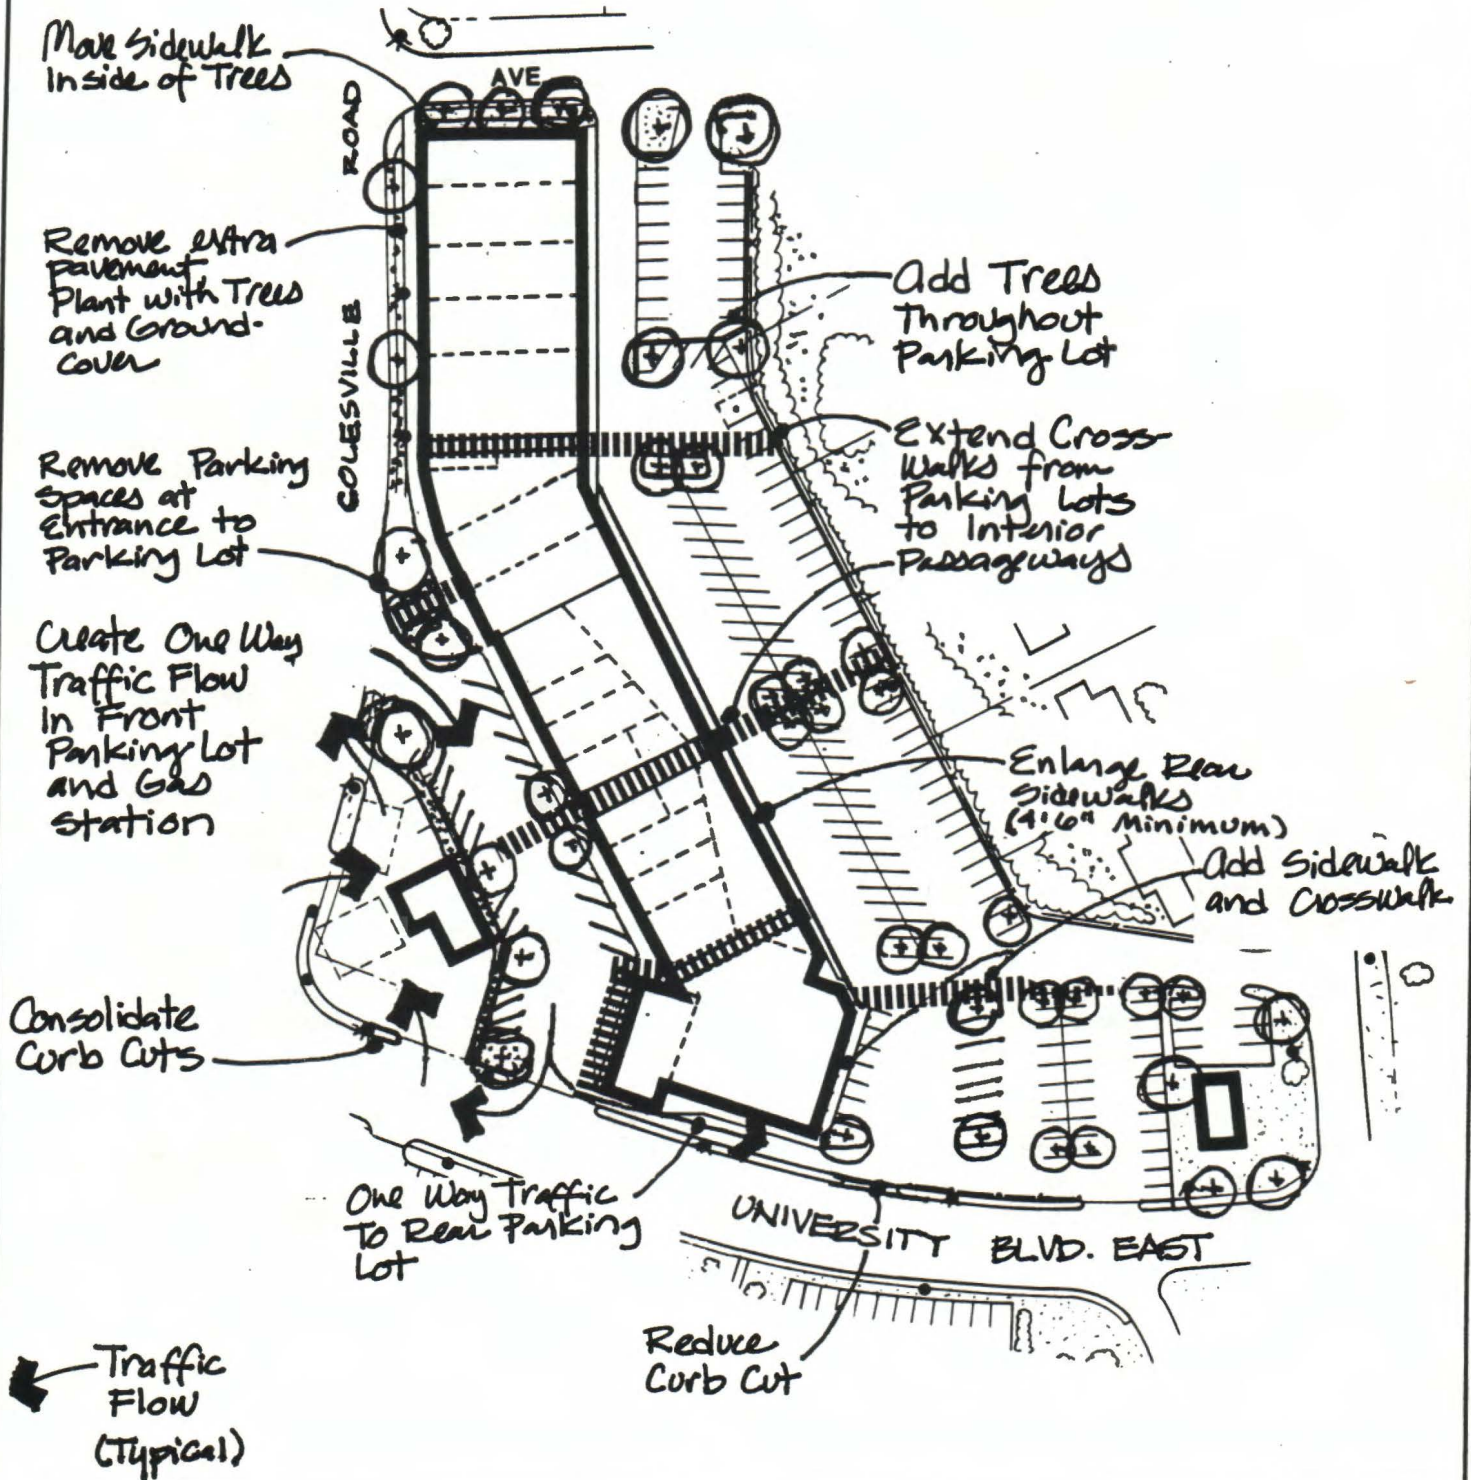 Move Sidewalk
Inside of Trees
AVE
ROAD
COLESVILLE
Remove extra
pavement,
Plant with Trees
and Ground-
cover
Remove Parking
Spaces at
Entrance to
Parking Lot
Create One Way
Traffic Flow
In Front
Parking Lot
and Gas
Station
Consolidate
Curb Cuts
Add Trees
Throughout
Parking Lot
Extend Cross-
Walks from
Parking Lots
to Interior
Passageways
Enlarge Rear
Sidewalks
(4'6" Minimum)
Add Sidewalk
and Crosswalk
One Way Traffic
To Rear Parking
Lot
UNIVERSITY BLVD. EAST
Reduce
Curb Cut
Traffic
Flow
(Typical)